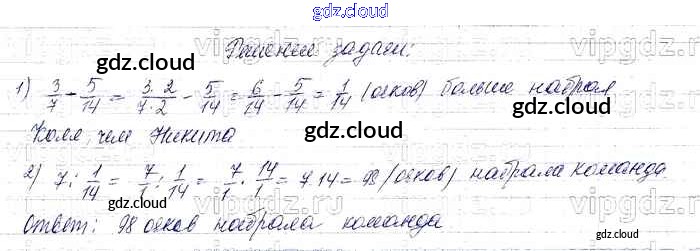 gdz.cloud
Решение задачи:
1) 3/7 - 5/14 = 3·2/7·2 - 5/14 = 6/14 - 5/14 = 1/14 (очков) больше набрал
Коля, чем Никита
2) 7 : 1/14 = 7/1 : 1/14 = 7/1 · 14/1 = 7·14 = 98 (очков) набрала команда
Ответ: 98 очков набрала команда